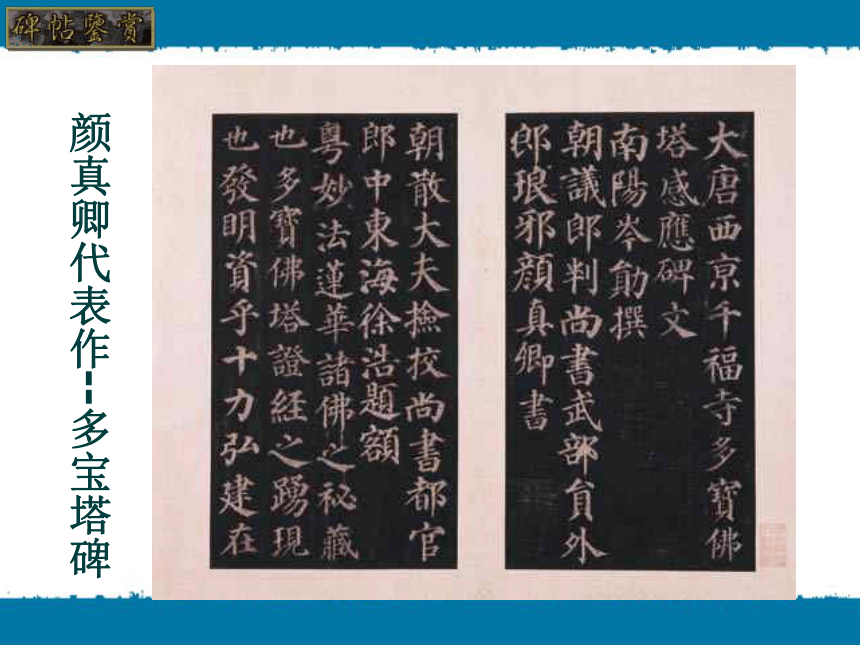 碑帖鑒賞
颜真卿代表作--多宝塔碑
大唐西京千福寺多寶佛
塔感應碑文
南陽岑勛撰
朝議郎判尚書武部員外
郎琅邪顏真卿書
朝散大夫撿校尚書都官
郎中東海徐浩題額
粵妙法蓮華諸佛之祕藏
也多寶佛塔證經之踴現
也發明資乎十力弘建在